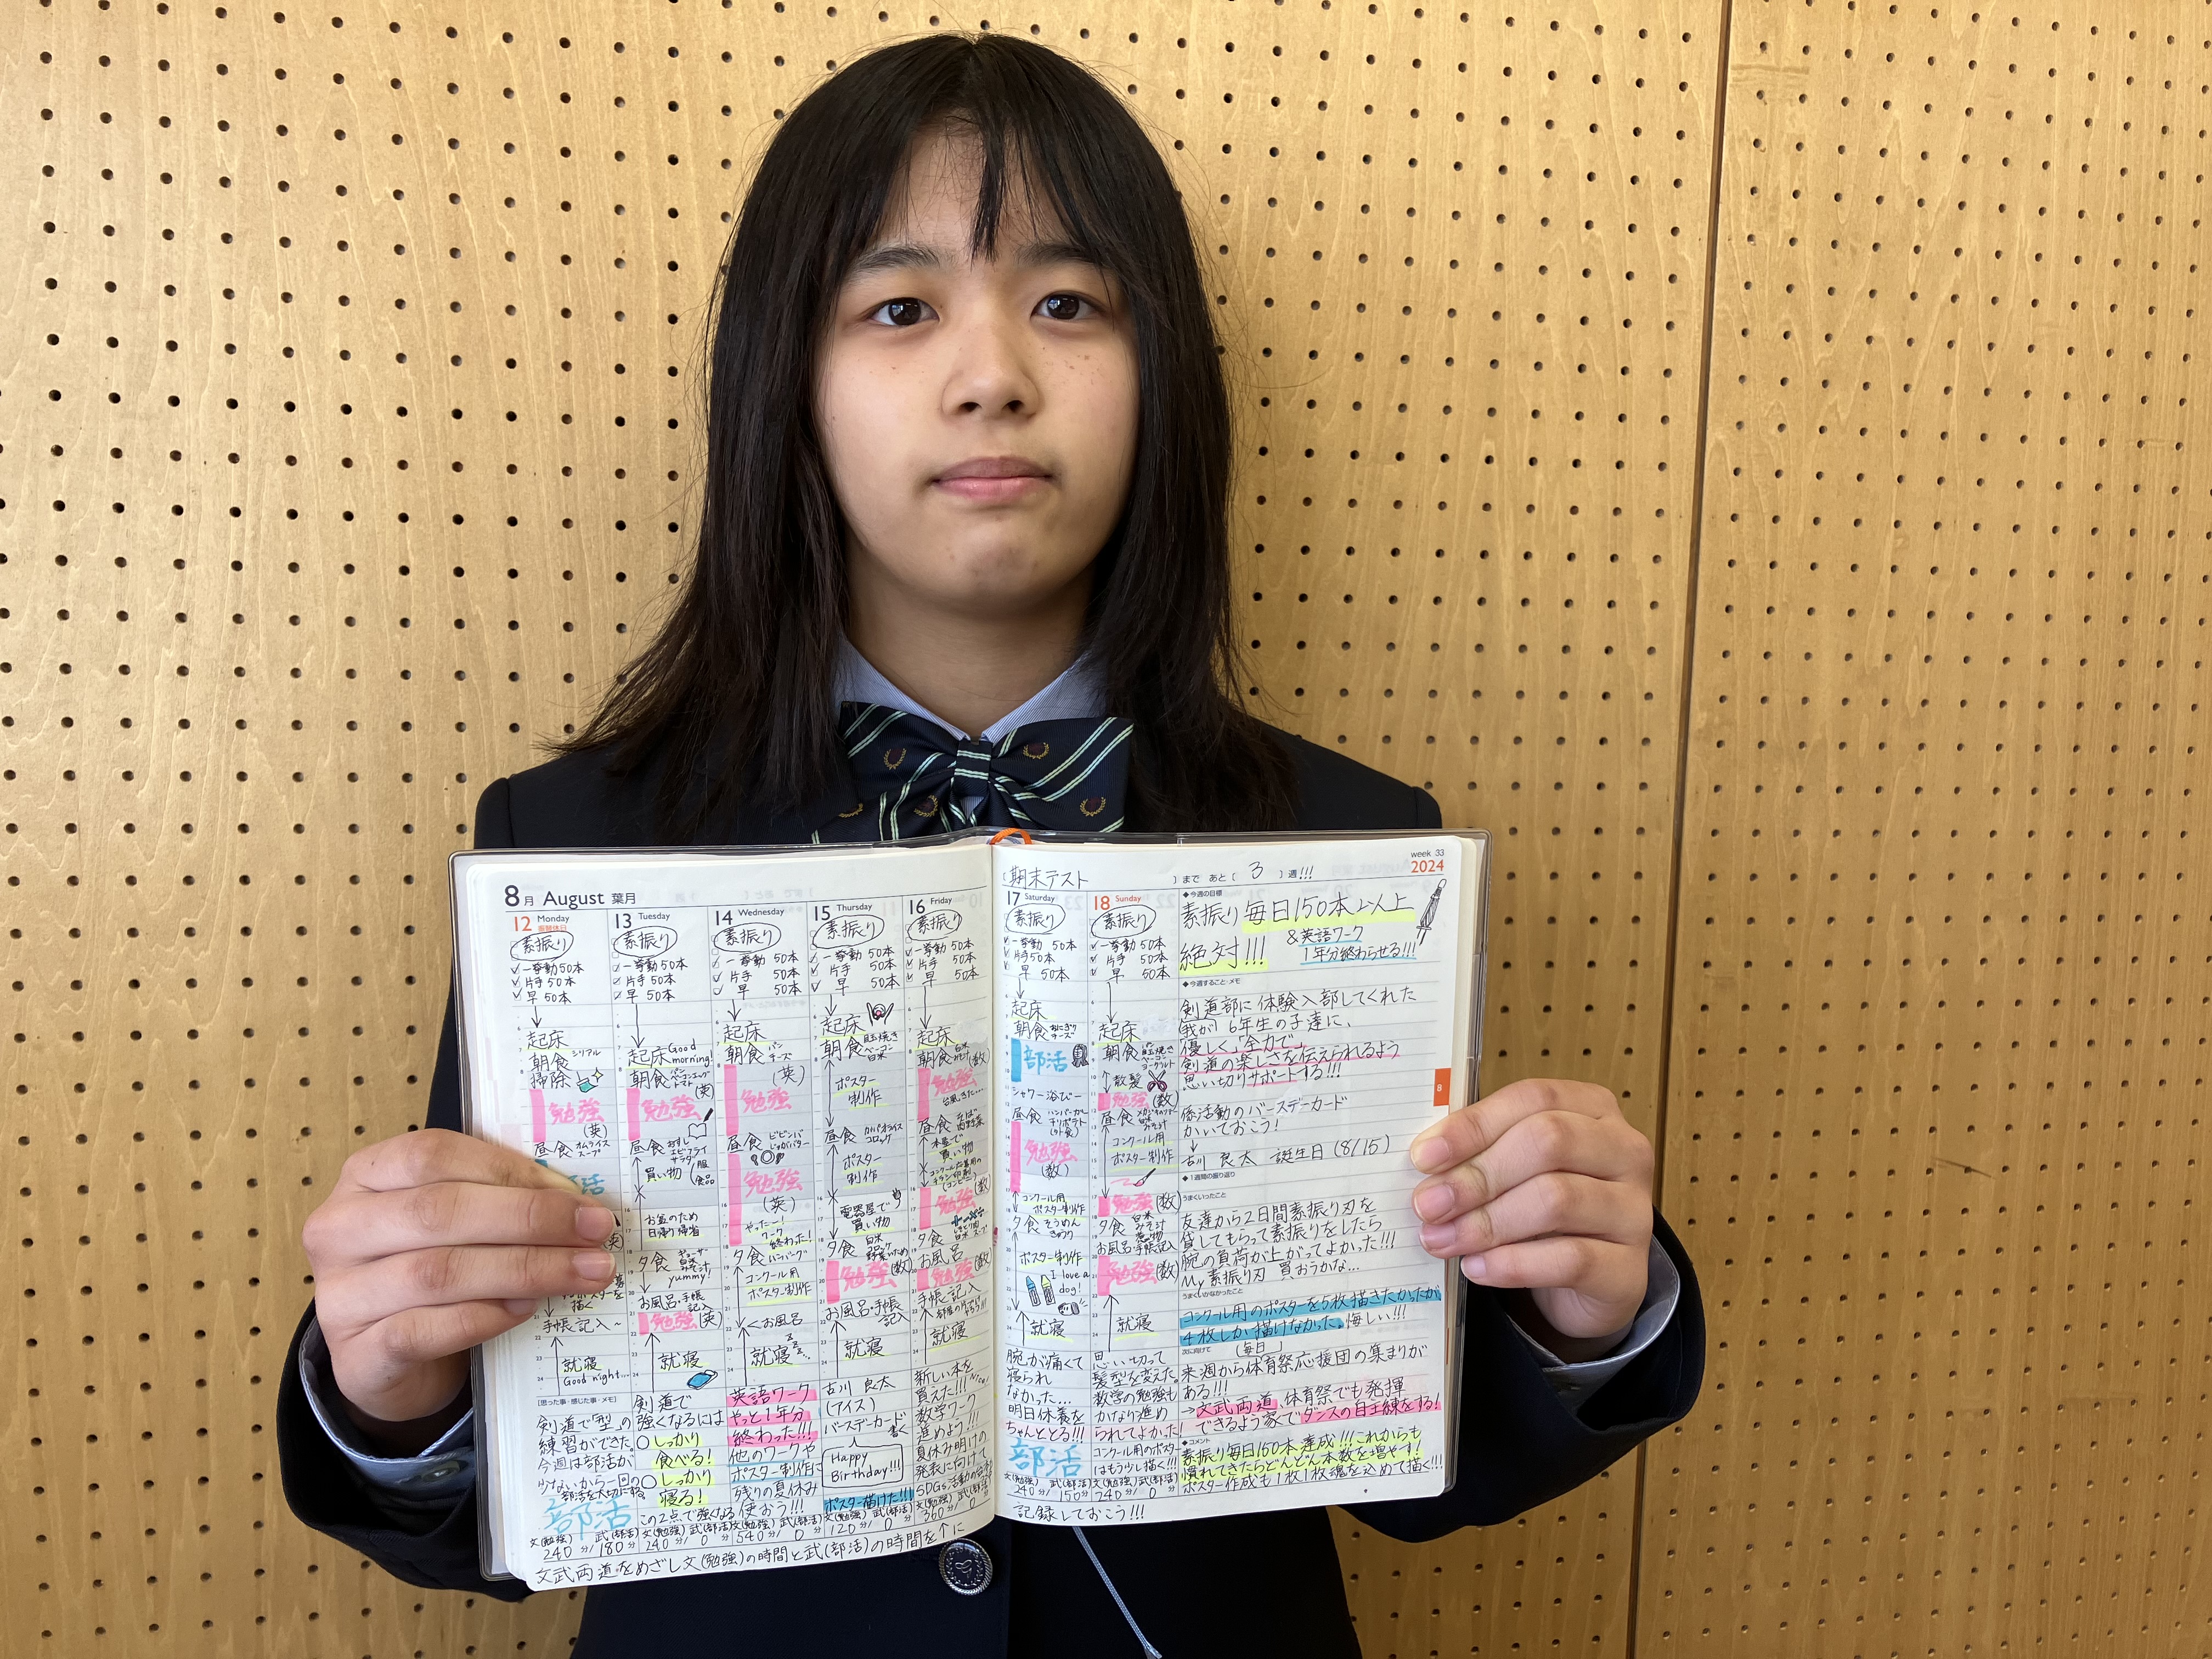 8月 August 葉月
12 Monday
振替休日
素振り
一挙動50本
片手50本
早 50本
起床
朝食 シリアル
掃除
勉強
(英)
昼食 オムライス
スープ
手帳記入~
就寝
Good night...
[思った事・感じた事・メモ]
剣道で「型」の
練習ができた。
今週は部活が
少ないから一回の
部活を大切にする
部活
文(勉強) 武(部活)
240分/180分
13 Tuesday
素振り
一挙動50本
片手50本
早 50本
起床 Good morning!
朝食 パン
ベーコンエッグ
トマト
勉強 (英)
昼食 おすし
エビフライ
サラダ
買い物 服 食品
お盆のため
日帰り帰省
夕食 ギョーザ
白米
みそ汁
yummy!
お風呂・手帳
記入
勉強 (英)
就寝
剣道で
強くなるには
○しっかり
食べる!
○しっかり
寝る!
この2点で強くなる
文(勉強) 武(部活)
240分/0分
14 Wednesday
素振り
一挙動 50本
片手 50本
早 50本
起床
朝食 パン
チーズ
(英)
勉強
昼食 ビビンバ
じゃがバター
勉強
(英)
やったー!
ワーク
終わった!
夕食 ハンバーグ
コンクール用
ポスター制作
お風呂
就寝 zzz...
英語ワーク
やっと1年分
終わった!!!
他のワークや
ポスター制作に
残りの夏休み
使おう!!!
文(勉強) 武(部活)
540分/0分
15 Thursday
素振り
一挙動 50本
片手 50本
早 50本
起床
朝食 目玉焼き
ベーコン
白米
ポスター
制作
昼食 ガパオライス
コロッケ
ポスター
制作
電器屋で
買い物
夕食 白米
勉強 (数)
お風呂・手帳
記入
就寝
古川 良太
(アイス)
バースデーカード
書く
Happy
Birthday!!!
ポスター描けた!!!
文(勉強) 武(部活)
120分/0分
16 Friday
素振り
一挙動 50本
片手 50本
早 50本
起床
朝食 白米
(数)
勉強
台風、きた...
昼食 そば
本屋で
買い物
勉強 (数)
夕食
お風呂
勉強 (数)
手帳記入
就寝
新しい本を
買えた!!! Nice!
数学ワーク
進めよう!!!
夏休み明けの
発表に向けて
SDGs活動の
文(勉強) 武(部活)
360分/0分
文武両道をめざし文(勉強)の時間と武(部活)の時間を↑に
[期末テスト ]まで あと[ 3 ]週!!!
week 33
2024
17 Saturday
素振り
一挙動 50本
片手 50本
早 50本
起床
朝食 おにぎり
チーズ
部活
シャワー浴びー
昼食 ハンバーガー
勉強
(数)
コンクール用
ポスター制作
夕食 そうめん
きゅうり
ポスター制作
I love a
dog!
就寝
腕が痛くて
寝られ
なかった...
明日休養を
ちゃんととる!!!
部活
文(勉強) 武(部活)
240分/150分
18 Sunday
素振り
一挙動 50本
片手 50本
早 50本
起床
朝食 パン
目玉焼き
ベーコン
ヨーグルト
散髪
勉強 (数)
昼食
コンクール用
ポスター制作
勉強 (数)
夕食 白米
みそ汁
お風呂・手帳記入
勉強 (数)
就寝
思い切って
髪型を変えた。
数学の勉強も
かなり進め
られてよかった!
コンクール用のポスター
はもう少し描く!!!
文(勉強) 武(部活)
240分/0分
◆今週の目標
素振り毎日150本以上
絶対!!!
&英語ワーク
1年分終わらせる!!!
◆今週すること・メモ
剣道部に体験入部してくれた
(我が)6年生の子達に、
優しく、全力で、
剣道の楽しさを伝えられるよう
思い切りサポートする!!!
係活動のバースデーカード
かいておこう!
古川 良太 誕生日(8/15)
◆1週間の振り返り
うまくいったこと
友達から2日間素振り刃を
貸してもらって素振りをしたら
腕の負荷が上がってよかった!!!
My素振り刃 買おうかな...
うまくいかなかったこと
コンクール用のポスターを5枚描きたかったが
4枚しか描けなかった。悔しい!!!
次に向けて
(毎日)
来週から体育祭応援団の集まりが
ある!!!
→文武両道、体育祭でも発揮
できるよう家でダンスの自主練をする!
◆コメント
素振り毎日150本達成!!!これからも
慣れてきたらどんどん本数を増やす!
ポスター作成も1枚1枚魂を込めて描く!!!
記録しておこう!!!
8